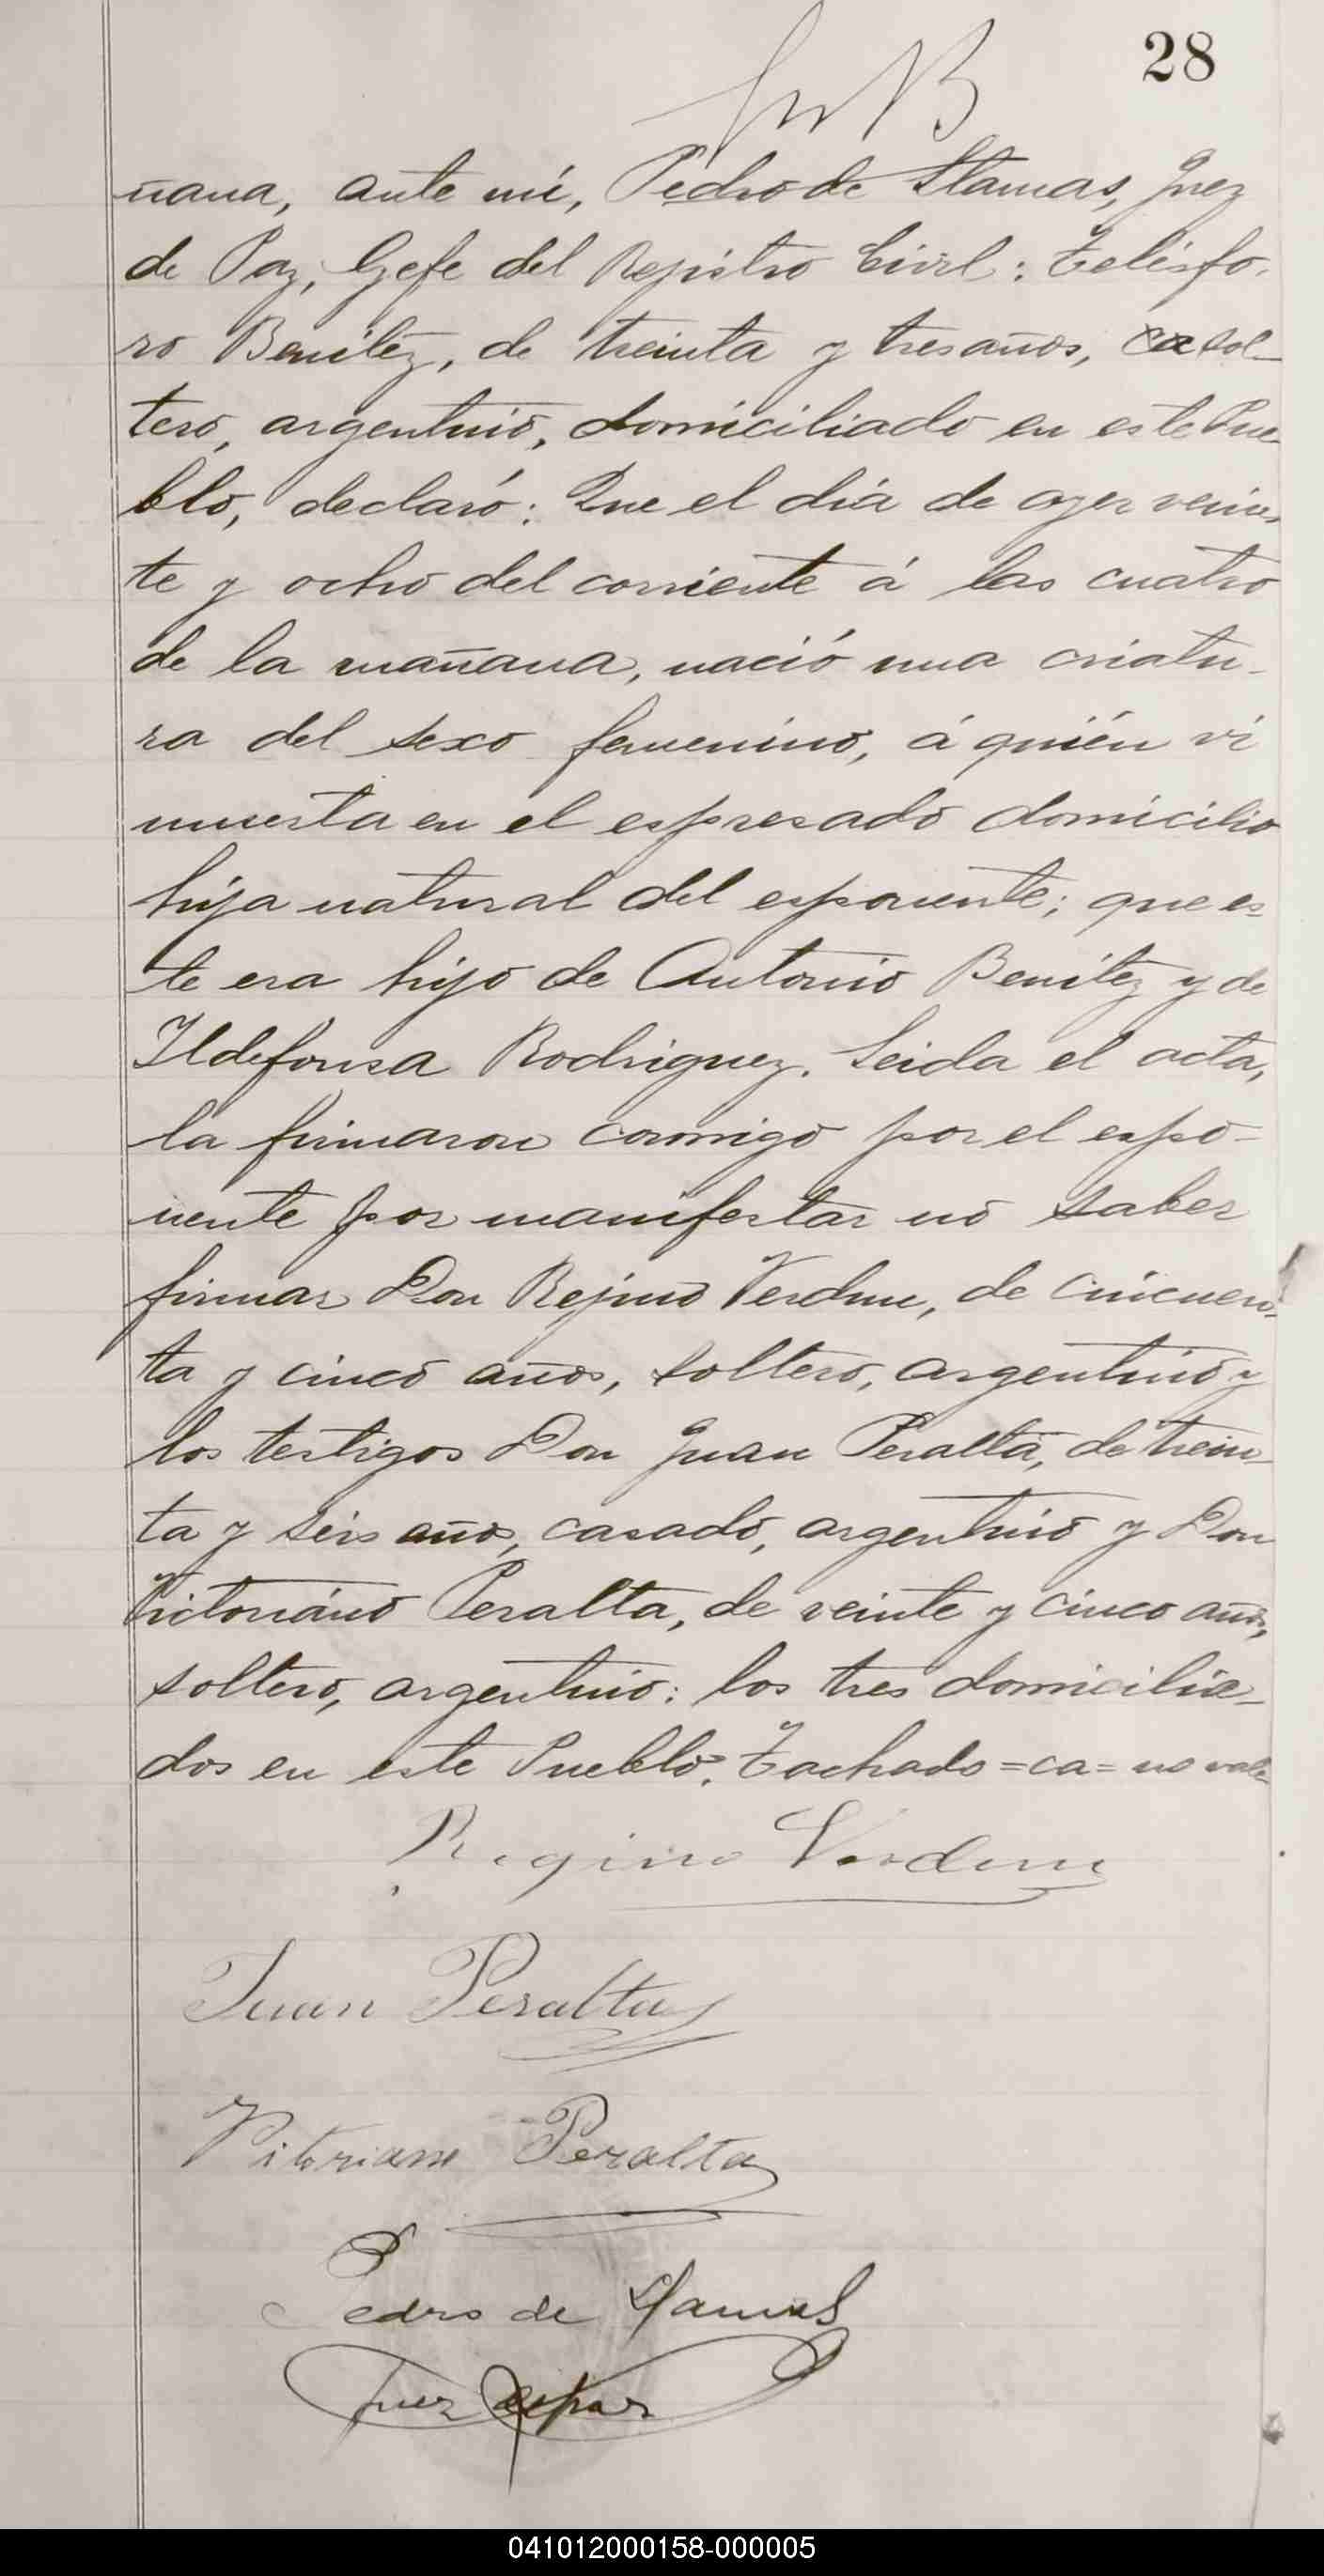 28
ñana, ante mí, Pedro de Llamas, Juez
de Paz, Gefe del Rejistro Civil: Telésfo-
ro Benitez, de treinta y tres años, ca sol-
tero, argentino, domiciliado en este Pue-
blo, declaró: Que el dia de ayer vein-
te y ocho del corriente á las cuatro
de la mañana, nació una criatu-
ra del sexo femenino, á quién ví
muerta en el espresado domicilio
hija natural del esponente; que es-
te era hijo de Antonio Benitez y de
Ildefonsa Rodriguez. Leida el acta,
la firmaron conmigo por el espo-
nente por manifestar no saber
firmar Don Rejino Verdun, de cincuen-
ta y cinco años, soltero, argentino y
los testigos Don Juan Peralta, de trein-
ta y seis años, casado, argentino y Don
Victoriáno Peralta, de veinte y cinco años,
soltero, argentino: los tres domicilia-
dos en este Pueblo. Tachado=ca=no vale
Regino Verdun
Juan Peralta
Vitoriano Peralta
Pedro de Llamas
Juez de paz
041012000158-000005